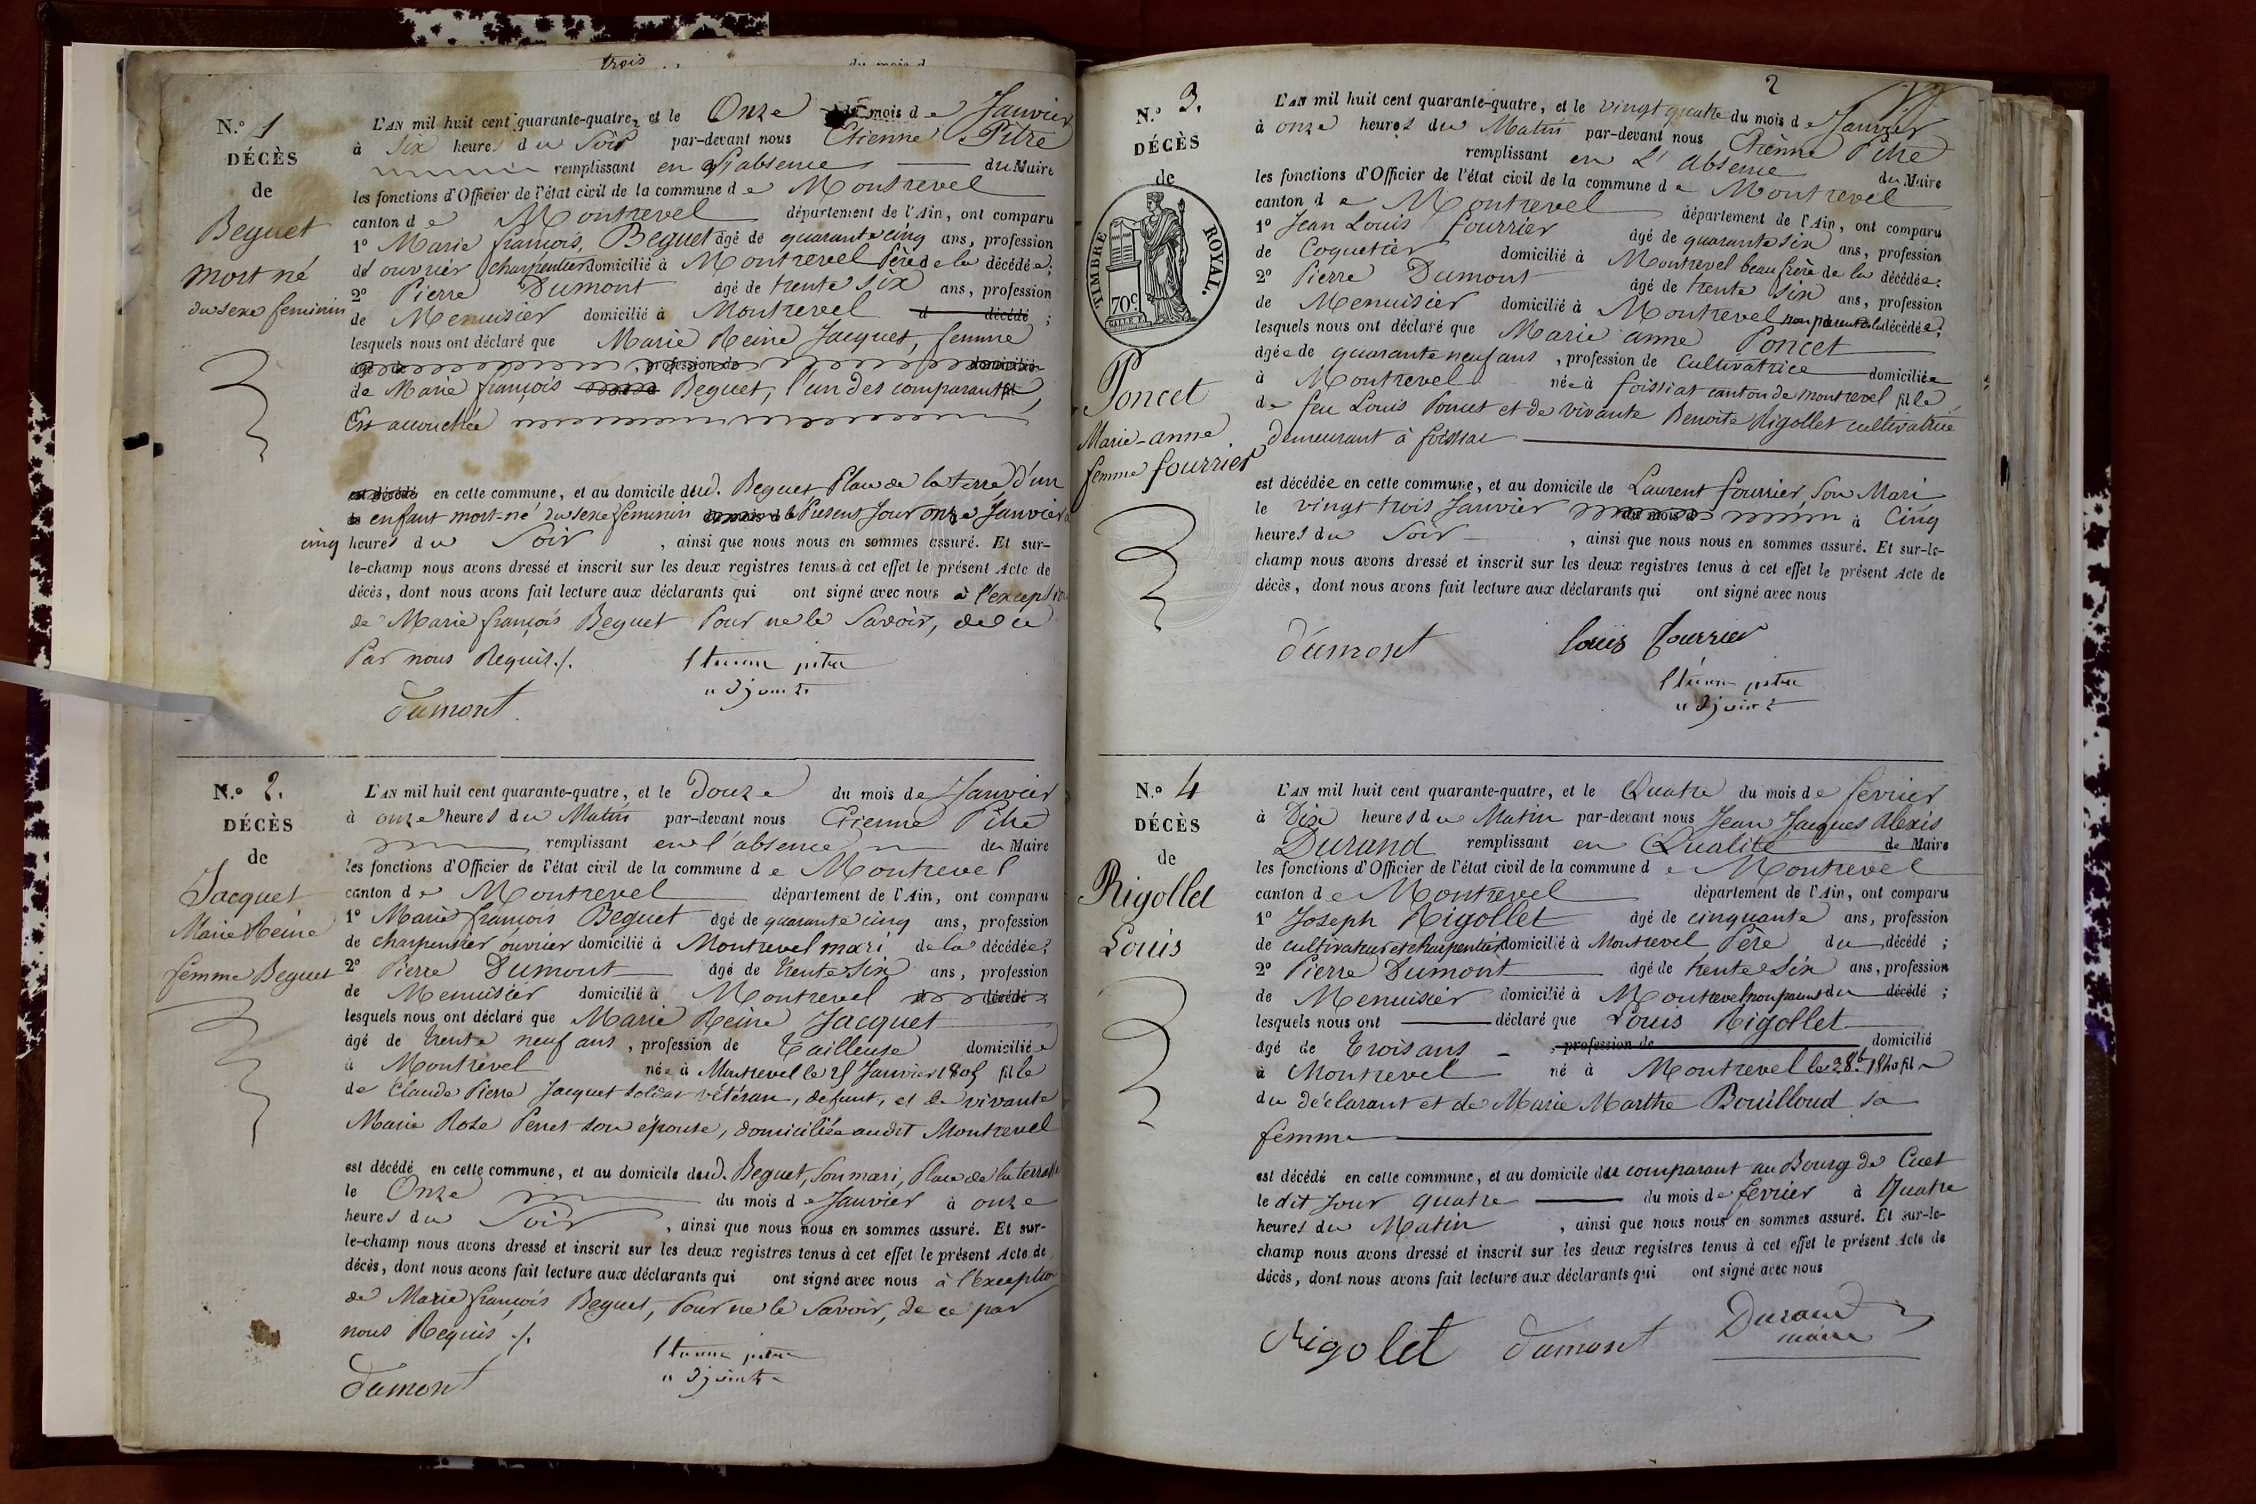 trois
du mois d
N.º 1
DÉCÈS
de
Beguet
mort né
du sexe feminin
L'AN mil huit cent quarante-quatre, et le Onze du mois de Janvier
à Six heures du Soir par-devant nous Etienne Pitre
remplissant en l'absence du Maire
les fonctions d'Officier de l'état civil de la commune de Montrevel
canton de Montrevel département de l'Ain, ont comparu
1º Marie françois Beguet âgé de quarante cinq ans, profession
de ouvrier charpentier domicilié à Montrevel Père de la décédée;
2º Pierre Dumont âgé de trente six ans, profession
de Menuisier domicilié à Montrevel d décédé ;
lesquels nous ont déclaré que Marie Reine Jacquet, femme
âgé de , profession de domicilié
de Marie françois Beguet, l'un des comparants fil
Est accouchée
est décédé en cette commune, et au domicile dud. Beguet Place de la terre d'un
le enfant mort-né du sexe feminin du mois de le Présent Jour onze Janvier à
cinq heures du Soir , ainsi que nous nous en sommes assuré. Et sur-
le-champ nous avons dressé et inscrit sur les deux registres tenus à cet effet le présent Acte de
décès, dont nous avons fait lecture aux déclarants qui ont signé avec nous à l'exception
de Marie françois Beguet Pour ne le Savoir, de ce
Par nous Requis ./.
Etienne pitre
adjoint
dumont
N.º 2.
DÉCÈS
de
Jacquet
Marie Reine
femme Beguet
L'AN mil huit cent quarante-quatre, et le Douze du mois de Janvier
à onze heures du Matin par-devant nous Etienne Pitre
remplissant en l'absence du Maire
les fonctions d'Officier de l'état civil de la commune de Montrevel
canton de Montrevel département de l'Ain, ont comparu
1º Marie françois Beguet âgé de quarante cinq ans, profession
de charpentier ouvrier domicilié à Montrevel mari de la décédée;
2º Pierre Dumont âgé de trente six ans, profession
de Menuisier domicilié à Montrevel d décédé ;
lesquels nous ont déclaré que Marie Reine Jacquet
âgé de trente neuf ans , profession de Tailleuse domiciliée
à Montrevel née à Montrevel le 25 Janvier 1805 fille
de Claude Pierre Jacquet soldat vétéran, defunt, et de vivante
Marie Rose Perret son épouse, domiciliée audit Montrevel
est décédé en cette commune, et au domicile dud. Beguet, son mari, Place de la terre
le Onze du mois de Janvier à onze
heures du Soir , ainsi que nous nous en sommes assuré. Et sur-
le-champ nous avons dressé et inscrit sur les deux registres tenus à cet effet le présent Acte de
décès, dont nous avons fait lecture aux déclarants qui ont signé avec nous à l'exception
de Marie françois Beguet, Pour ne le Savoir, de ce par
nous Requis ./.
Etienne pitre
adjoint
dumont
2
N.º 3.
DÉCÈS
de
TIMBRE ROYAL.
70c
Poncet
Marie-anne
femme fourrier
L'AN mil huit cent quarante-quatre, et le vingt quatre du mois de Janvier
à onze heures du Matin par-devant nous Etienne Pitre
remplissant en L'absence du Maire
les fonctions d'Officier de l'état civil de la commune de Montrevel
canton de Montrevel département de l'Ain, ont comparu
1º Jean Louis fourrier âgé de quarante six ans, profession
de Coquetier domicilié à Montrevel beau frère de la décédée;
2º Pierre Dumont âgé de trente six ans, profession
de Menuisier domicilié à Montrevel non parent de la décédée;
lesquels nous ont déclaré que Marie anne Poncet
âgée de quarante neuf ans , profession de Cultivatrice domiciliée
à Montrevel née à foissiat canton de montrevel fille
de feu Louis Poncet et de vivante Benoite Rigollet cultivatrice
demeurant à foissiat
est décédée en cette commune, et au domicile de Laurent fourrier son Mari
le vingt trois Janvier du mois d à Cinq
heures du Soir , ainsi que nous nous en sommes assuré. Et sur-le-
champ nous avons dressé et inscrit sur les deux registres tenus à cet effet le présent Acte de
décès, dont nous avons fait lecture aux déclarants qui ont signé avec nous
dumont
Louis fourrier
Etienne pitre
adjoint
N.º 4
DÉCÈS
de
Rigollet
Louis
L'AN mil huit cent quarante-quatre, et le Quatre du mois de fevrier
à Dix heures du Matin par-devant nous Jean Jacques Alexis
Durand remplissant en Qualité de Maire
les fonctions d'Officier de l'état civil de la commune de Montrevel
canton de Montrevel département de l'Ain, ont comparu
1º Joseph Rigollet âgé de cinquante ans, profession
de cultivateur et charpentier domicilié à Montrevel Père du décédé ;
2º Pierre Dumont âgé de trente six ans, profession
de Menuisier domicilié à Montrevel non parent du décédé ;
lesquels nous ont déclaré que Louis Rigollet
âgé de trois ans , profession de domicilié
à Montrevel né à Montrevel le 28 bre 1840 fils
du déclarant et de Marie Marthe Bouilloud sa
femme
est décédé en cette commune, et au domicile du comparant au Bourg de Cuet
le dit Jour quatre du mois de fevrier à Quatre
heures du Matin , ainsi que nous nous en sommes assuré. Et sur-le-
champ nous avons dressé et inscrit sur les deux registres tenus à cet effet le présent Acte de
décès, dont nous avons fait lecture aux déclarants qui ont signé avec nous
Rigolet
dumont
Durand
maire